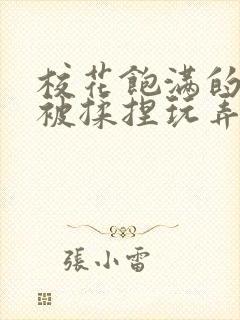 校花飽满的
被揉捏玩弄
張小雷